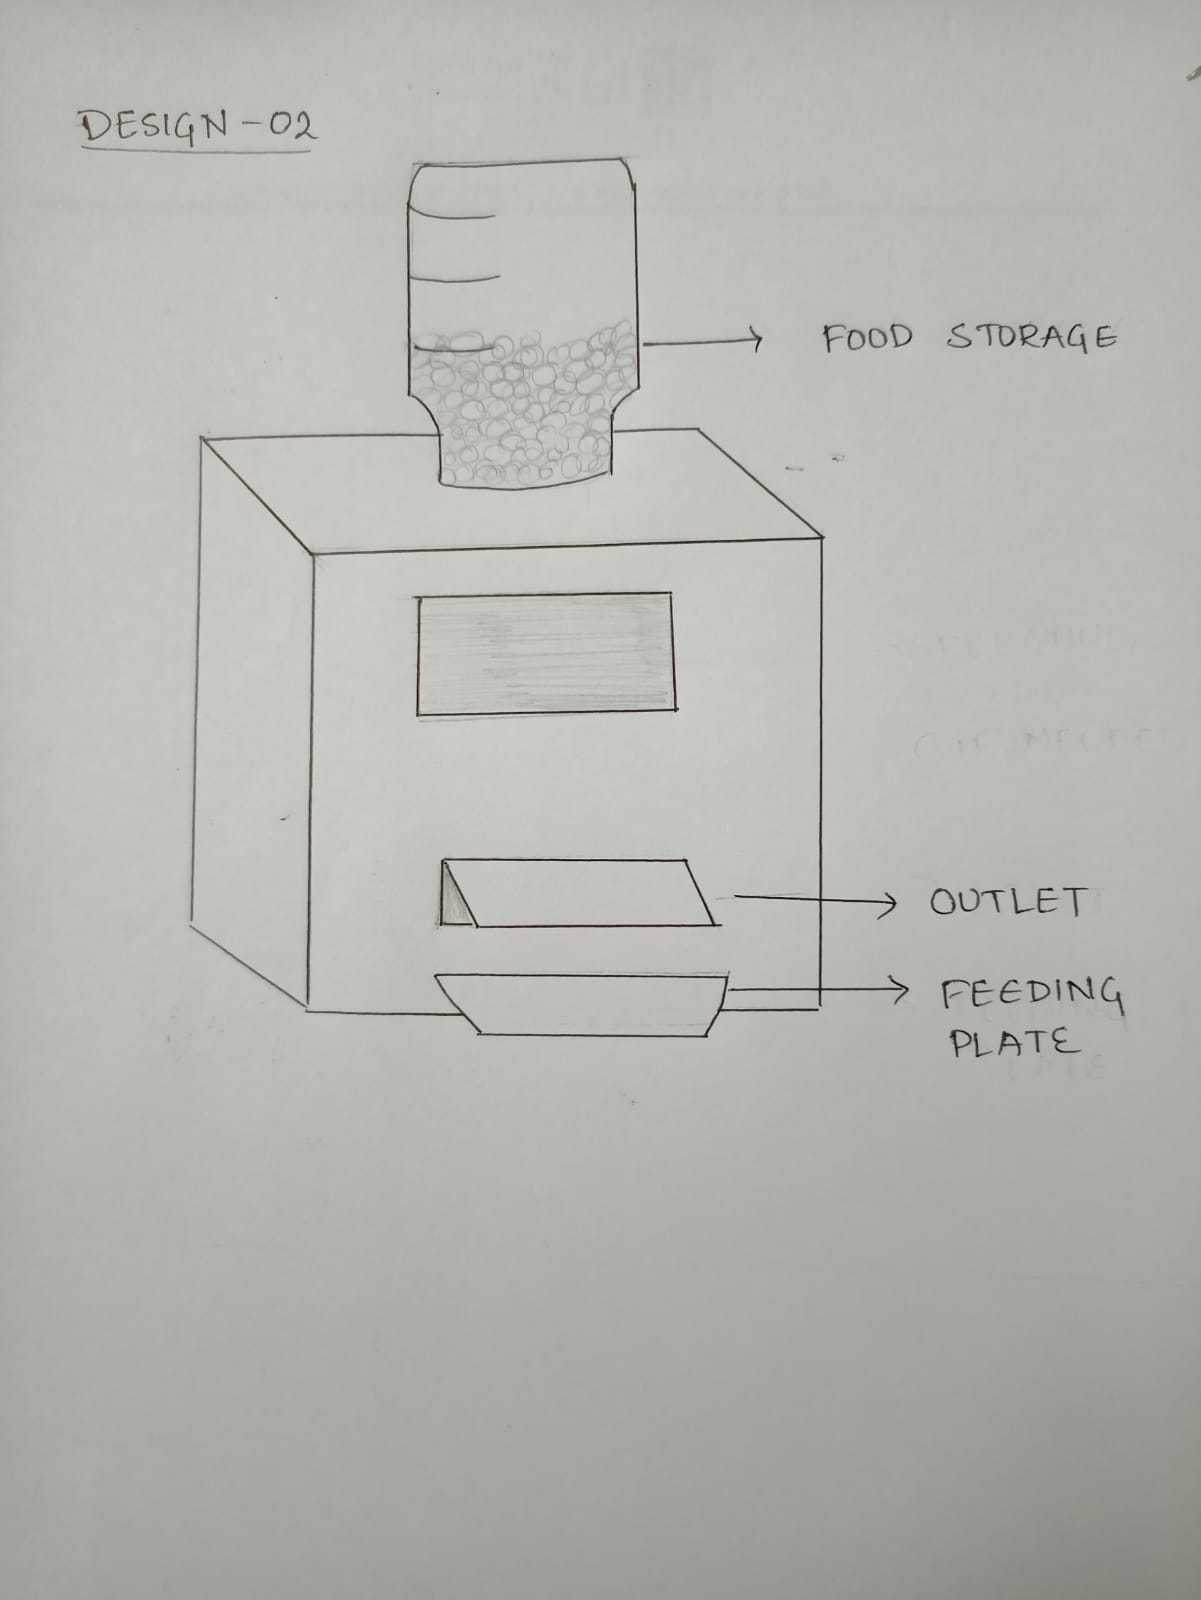 DESIGN-02
FOOD STORAGE
OUTLET
FEEDING
PLATE